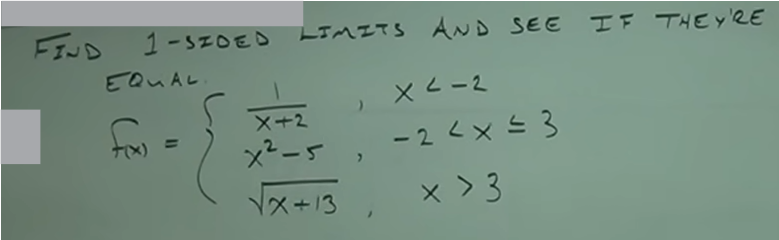 FIND 1-SIDED LIMITS AND SEE IF THEY'RE
EQUAL.
f(x) = { 1/(x+2) , x < -2
x² - 5 , -2 < x ≤ 3
√(x+13) , x > 3